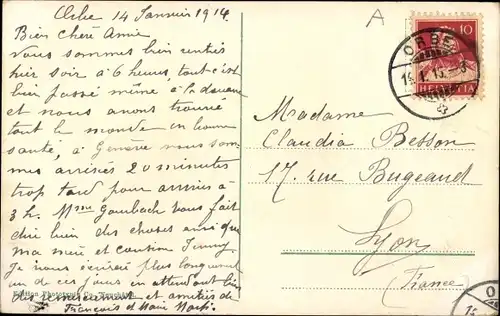 Orbe 14 Janvier 1914
Bien Chère Amie
Vous sommes bien rentrés
hier soir à 6 heures, tout c'est
bien passé même à la douane
et nous avons trouvé
tout le monde en bonne
santé, à Genève nous som
mes arrivés 20 minutes
trop tard pour arriver à
3 h. Mme Gambach vous fait
dire bien des choses ainsi que
ma mère et cousine Jenny
Je vous écrirai plus longuement
un de ces jours en attendant bien
des remerciements et amitiés de
François et Marie
Edition Phototypie Co., Neuchâtel
A
10
HELVETIA
ORBE
Madame
Claudia Besson
17, rue Bugeaud
Lyon
(France)